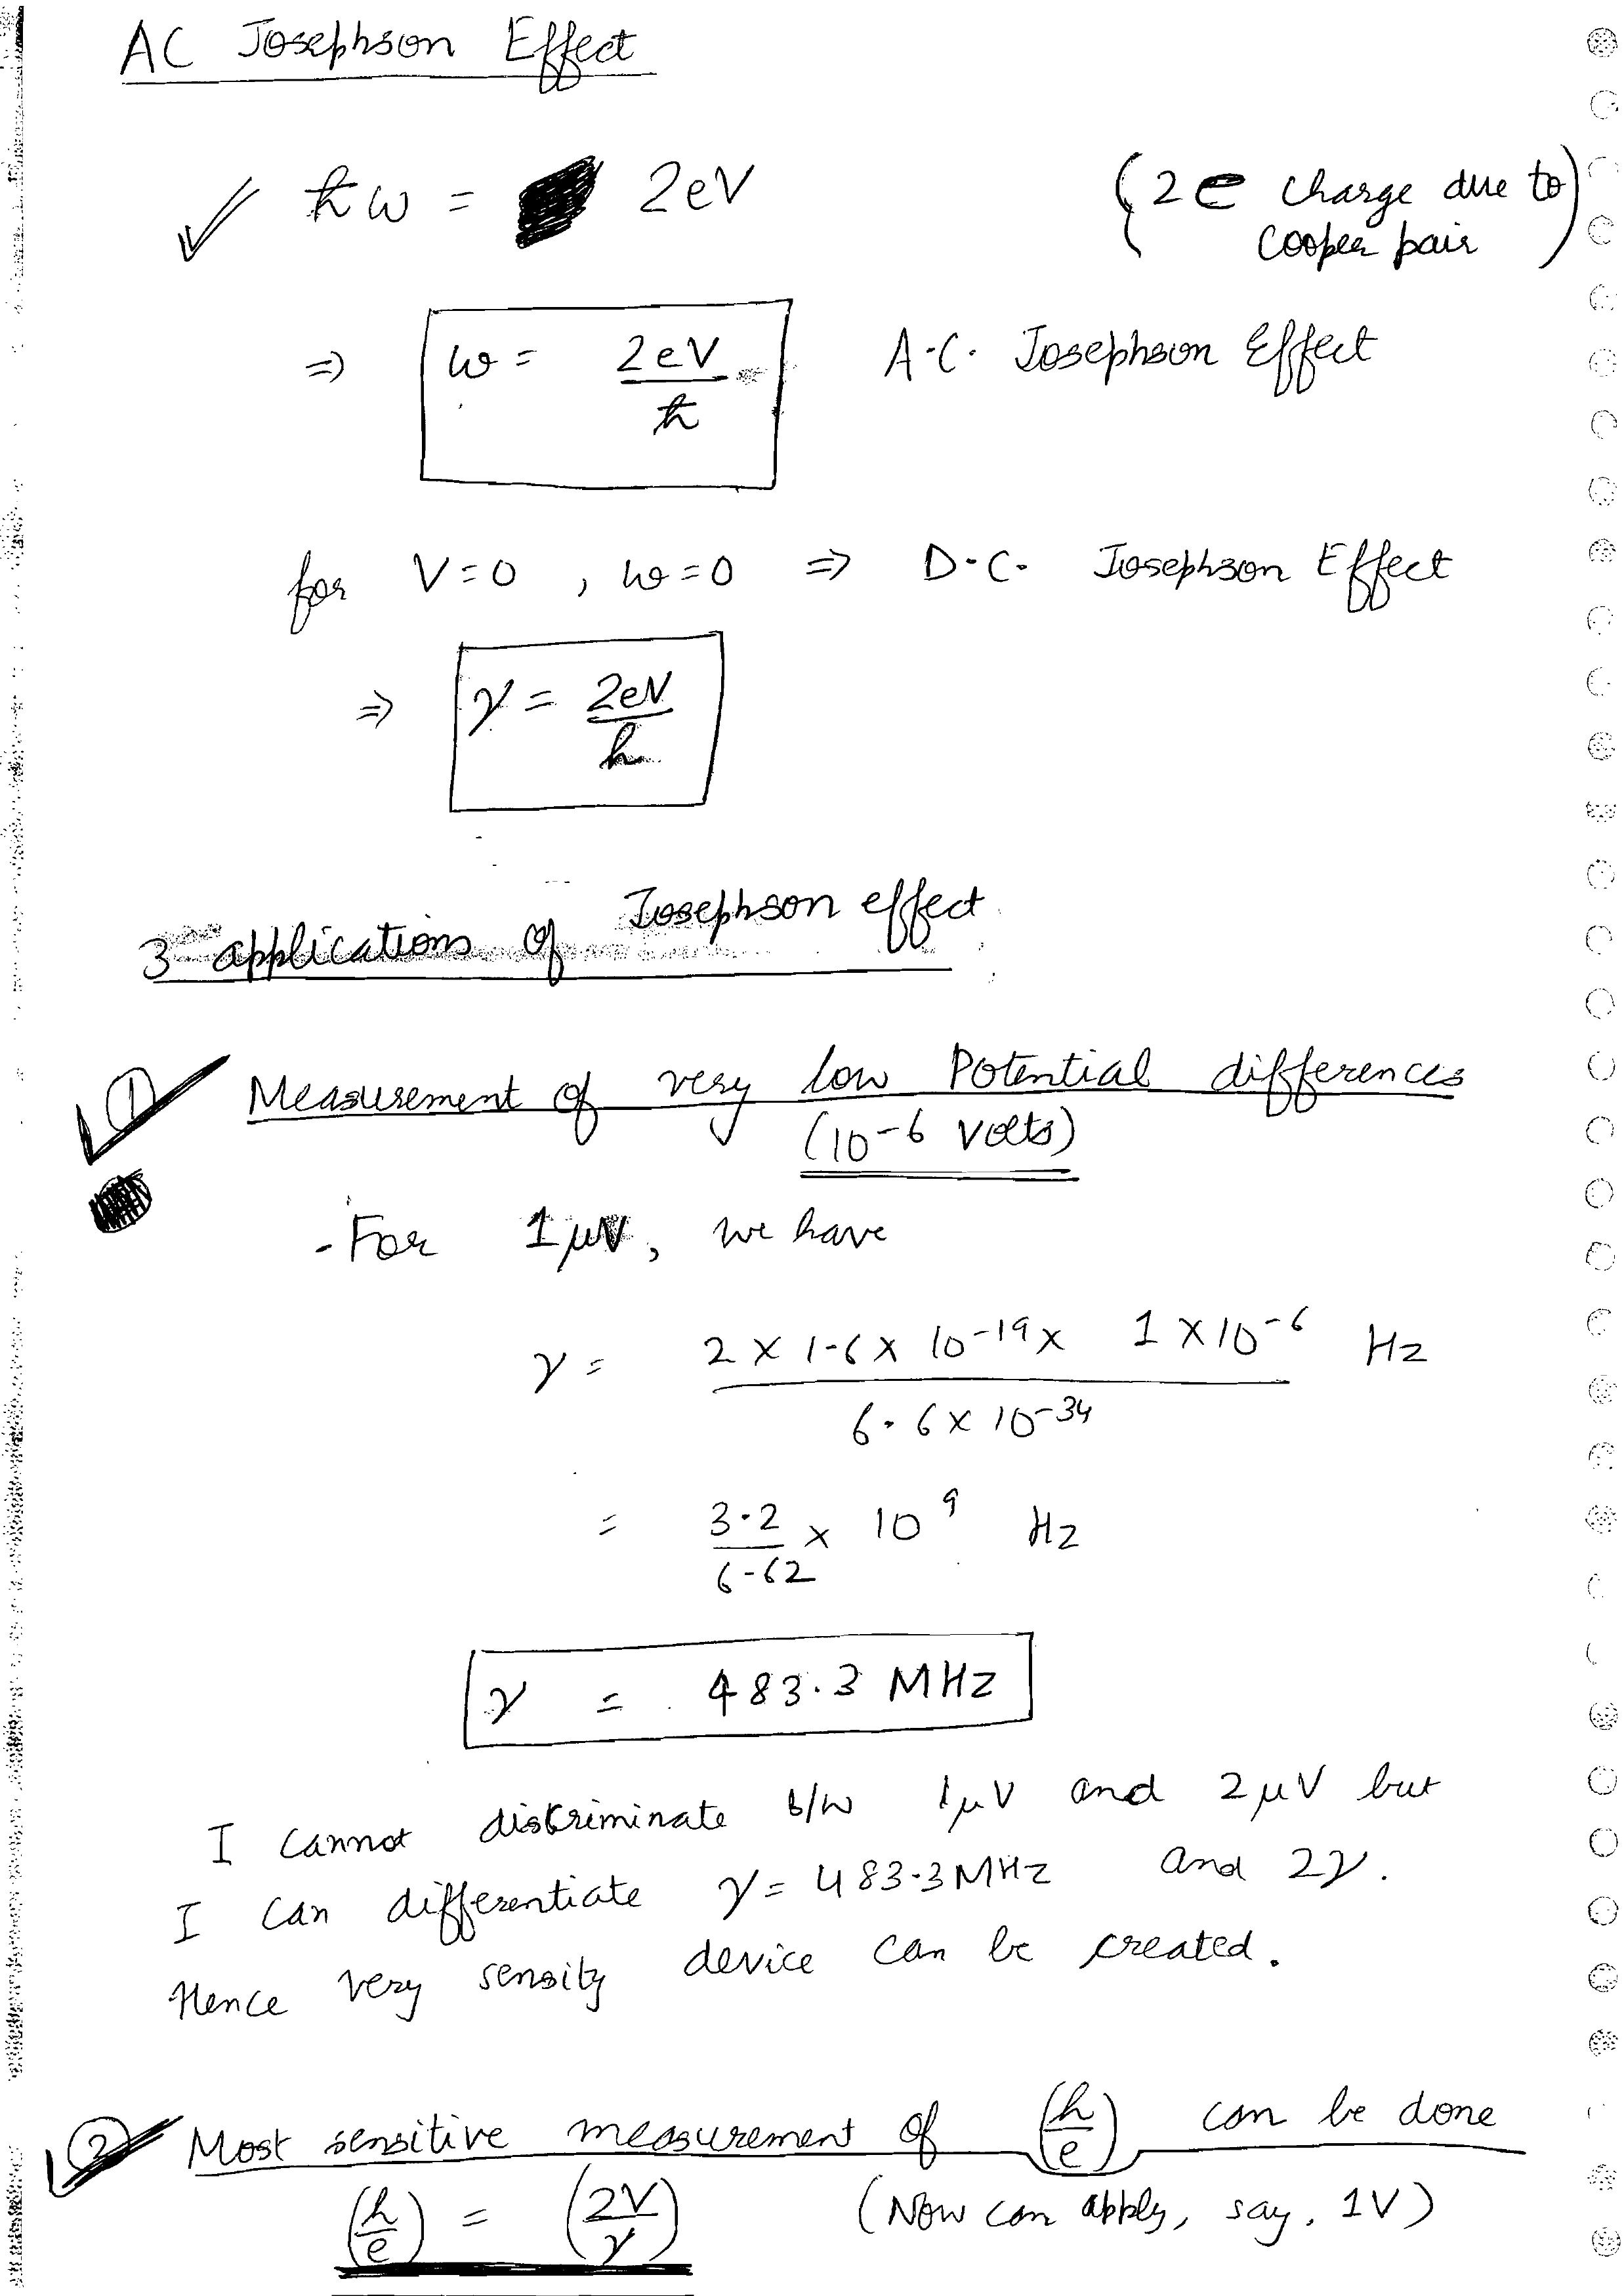 AC Josephson Effect
ħω = 2eV (2e charge due to
Cooper pair)
⇒ ω = 2eV/ħ A.C. Josephson Effect
for V=0, ω=0 ⇒ D.C. Josephson Effect
⇒ γ = 2eV/h
3 applications of Josephson effect
① Measurement of very low Potential differences
(10-6 volts)
- For 1μV, we have
γ = 2 X 1.6 X 10-19 X 1 X 10-6 / 6.6 X 10-34 Hz
= 3.2/6.62 X 10^9 Hz
γ = 483.3 MHZ
I cannot discriminate b/w 1μV and 2μV but
I can differentiate γ = 483.3MHZ and 2γ.
Hence very sensity device can be created.
② Most sensitive measurement of (h/e) can be done
(h/e) = (2V/γ) (Now can apply, say, 1V)